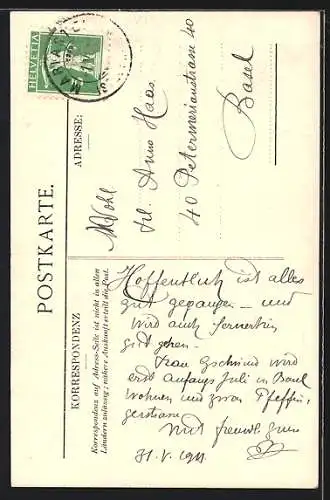 POSTKARTE.
KORRESPONDENZ
Korrespondenz auf Adress-Seite ist nicht in allen
Ländern zulässig; nähere Auskunft erteilt die Post.
ADRESSE:
HELVETIA
Wohl
Frl. Anna Haas
40 Petersmerianstrasse 40
Basel
Hoffentlich ist alles
gut gegangen – und
wird auch fernerhin
gut gehen –
Frau Gschwind wird
erst anfangs Juli in Basel
wohnen und zwar Pfeffin-
gerstrasse
Mit freundl. Gruss
31. V. 1911